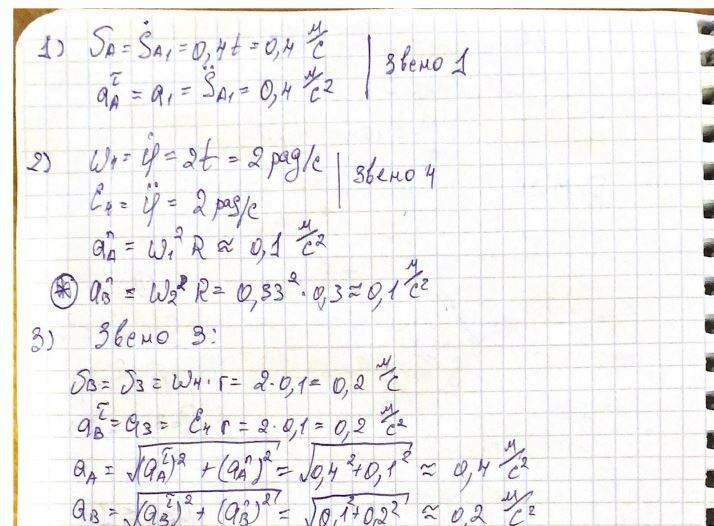 1) υA = ṠA1 = 0,4t = 0,4 м/с
aAτ = a1 = S̈A1 = 0,4 м/с²
Звено 1
2) ω4 = φ̇ = 2t = 2 рад/с
Звено 4
ε4 = φ̈ = 2 рад/с
aAn = ω1² R ≈ 0,1 м/с²
* aBn = ω2² R = 0,33² · 0,3 ≈ 0,1 м/с²
3) Звено 3:
υB = υ3 = ω4 · r = 2 · 0,1 = 0,2 м/с
aBτ = a3 = ε4 r = 2 · 0,1 = 0,2 м/с²
aA = √((aAτ)² + (aAn)²) = √(0,4² + 0,1²) ≈ 0,4 м/с²
aB = √((aBτ)² + (aBn)²) = √(0,1² + 0,2²) ≈ 0,2 м/с²